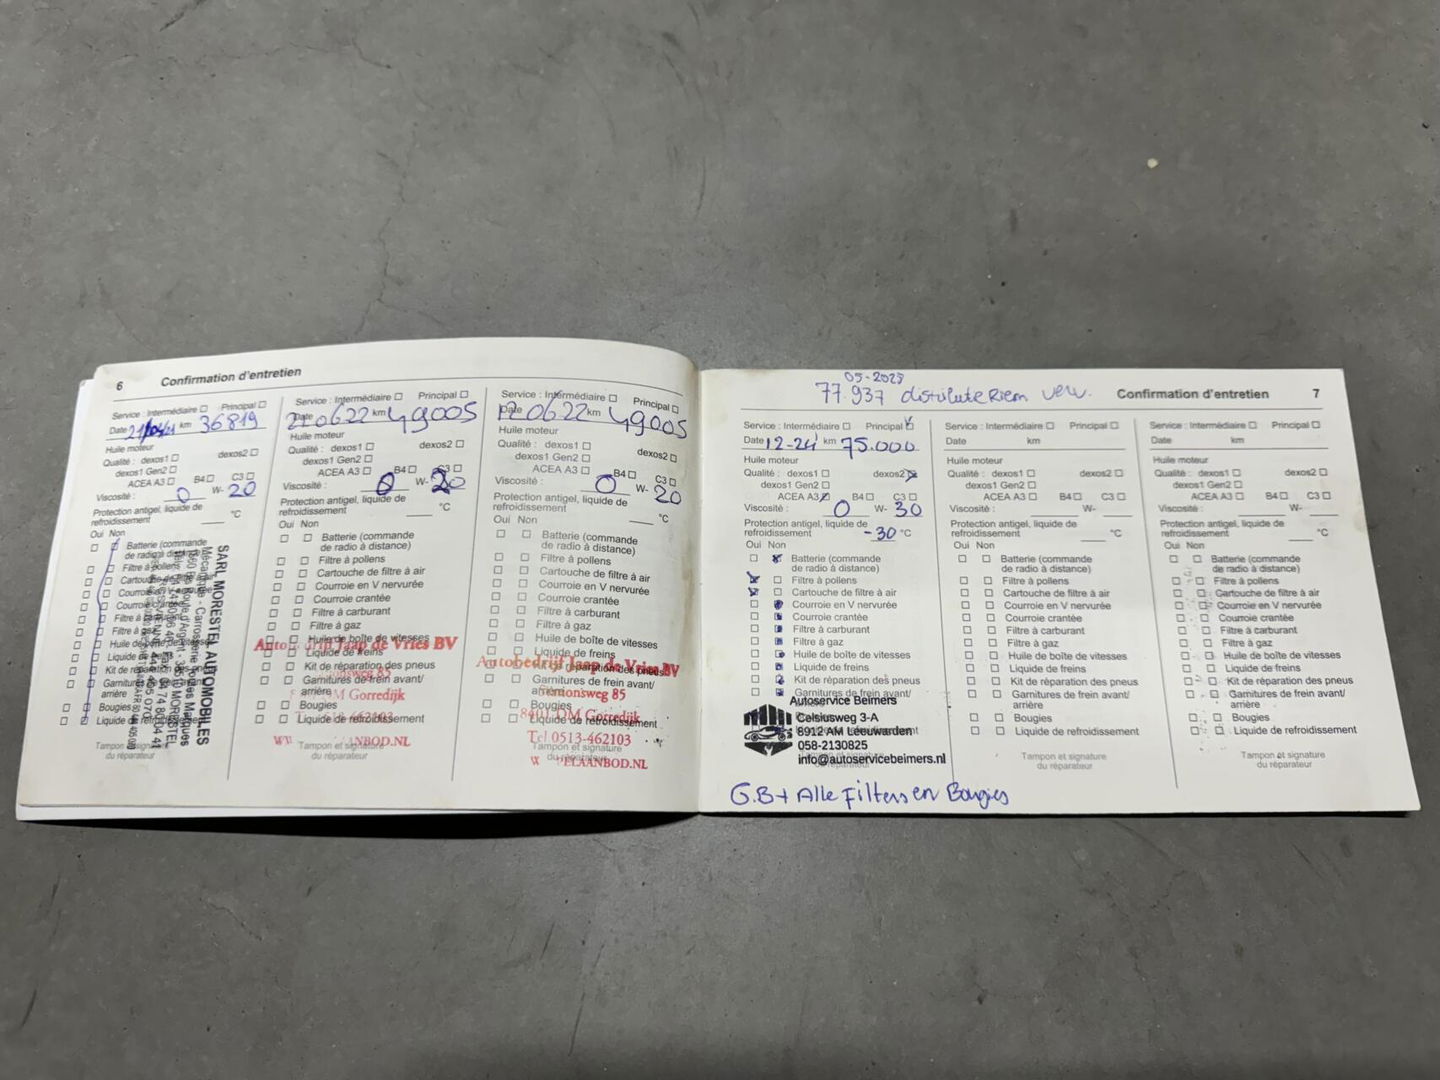 6 Confirmation d'entretien
Service : Intermédiaire Principal
Date km 36819
Huile moteur
Qualité : dexos1 dexos2
dexos1 Gen2
ACEA A3 B4 C3
Viscosité : 0 W- 20
Protection antigel, liquide de
refroidissement °C
Oui Non
Batterie (commande
de radio à distance)
Filtre à pollens
Cartouche de filtre à air
Courroie en V nervurée
Courroie crantée
Filtre à
Filtre à gaz
Huile de boîte de vitesses
Liquide de freins
Kit de réparation des pneus
Garnitures de frein avant/
arrière
Bougies
Liquide de refroidissement
SARL MORESTEL AUTOMOBILES
Mécanique - Carrosserie Toutes Marques
MORESTEL
Tampon et signature
du réparateur
Service : Intermédiaire Principal
Date 210622 km 49005
Huile moteur
Qualité : dexos1 dexos2
dexos1 Gen2
ACEA A3 B4 C3
Viscosité : 0 W- 20
Protection antigel, liquide de
refroidissement °C
Oui Non
Batterie (commande
de radio à distance)
Filtre à pollens
Cartouche de filtre à air
Courroie en V nervurée
Courroie crantée
Filtre à carburant
Filtre à gaz
Huile de boîte de vitesses
Liquide de freins
Kit de réparation des pneus
Garnitures de frein avant/
arrière
Bougies
Liquide de refroidissement
Jaap de Vries BV
Gorredijk
Tampon et signature
du réparateur
Service : Intermédiaire Principal
Date 120622 km 49005
Huile moteur
Qualité : dexos1 dexos2
dexos1 Gen2
ACEA A3 B4 C3
Viscosité : 0 W- 20
Protection antigel, liquide de
refroidissement °C
Oui Non
Batterie (commande
de radio à distance)
Filtre à pollens
Cartouche de filtre à air
Courroie en V nervurée
Courroie crantée
Filtre à carburant
Filtre à gaz
Huile de boîte de vitesses
Liquide de freins
Kit de réparation des pneus
Garnitures de frein avant/
arrière
Bougies
Liquide de refroidissement
Autobedrijf Jaap de Vries BV
Stationsweg 85
8401 DM Gorredijk
Tel 0513-462103
Tampon et signature
du réparateur
05-2025
77.937 distributie Riem verv. Confirmation d'entretien 7
Service : Intermédiaire Principal
Date 12-24 km 75.000
Huile moteur
Qualité : dexos1 dexos2
dexos1 Gen2
ACEA A3 B4 C3
Viscosité : 0 W- 30
Protection antigel, liquide de
refroidissement -30 °C
Oui Non
Batterie (commande
de radio à distance)
Filtre à pollens
Cartouche de filtre à air
Courroie en V nervurée
Courroie crantée
Filtre à carburant
Filtre à gaz
Huile de boîte de vitesses
Liquide de freins
Kit de réparation des pneus
Garnitures de frein avant/
Autoservice Beimers
Celsiusweg 3-A
8912 AM Leeuwarden
058-2130825
info@autoservicebeimers.nl
G.B + Alle Filters en Bougies
Service : Intermédiaire Principal
Date km
Huile moteur
Qualité : dexos1 dexos2
dexos1 Gen2
ACEA A3 B4 C3
Viscosité : W-
Protection antigel, liquide de
refroidissement °C
Oui Non
Batterie (commande
de radio à distance)
Filtre à pollens
Cartouche de filtre à air
Courroie en V nervurée
Courroie crantée
Filtre à carburant
Filtre à gaz
Huile de boîte de vitesses
Liquide de freins
Kit de réparation des pneus
Garnitures de frein avant/
arrière
Bougies
Liquide de refroidissement
Tampon et signature
du réparateur
Service : Intermédiaire Principal
Date km
Huile moteur
Qualité : dexos1 dexos2
dexos1 Gen2
ACEA A3 B4 C3
Viscosité : W-
Protection antigel, liquide de
refroidissement °C
Oui Non
Batterie (commande
de radio à distance)
Filtre à pollens
Cartouche de filtre à air
Courroie en V nervurée
Courroie crantée
Filtre à carburant
Filtre à gaz
Huile de boîte de vitesses
Liquide de freins
Kit de réparation des pneus
Garnitures de frein avant/
arrière
Bougies
Liquide de refroidissement
Tampon et signature
du réparateur